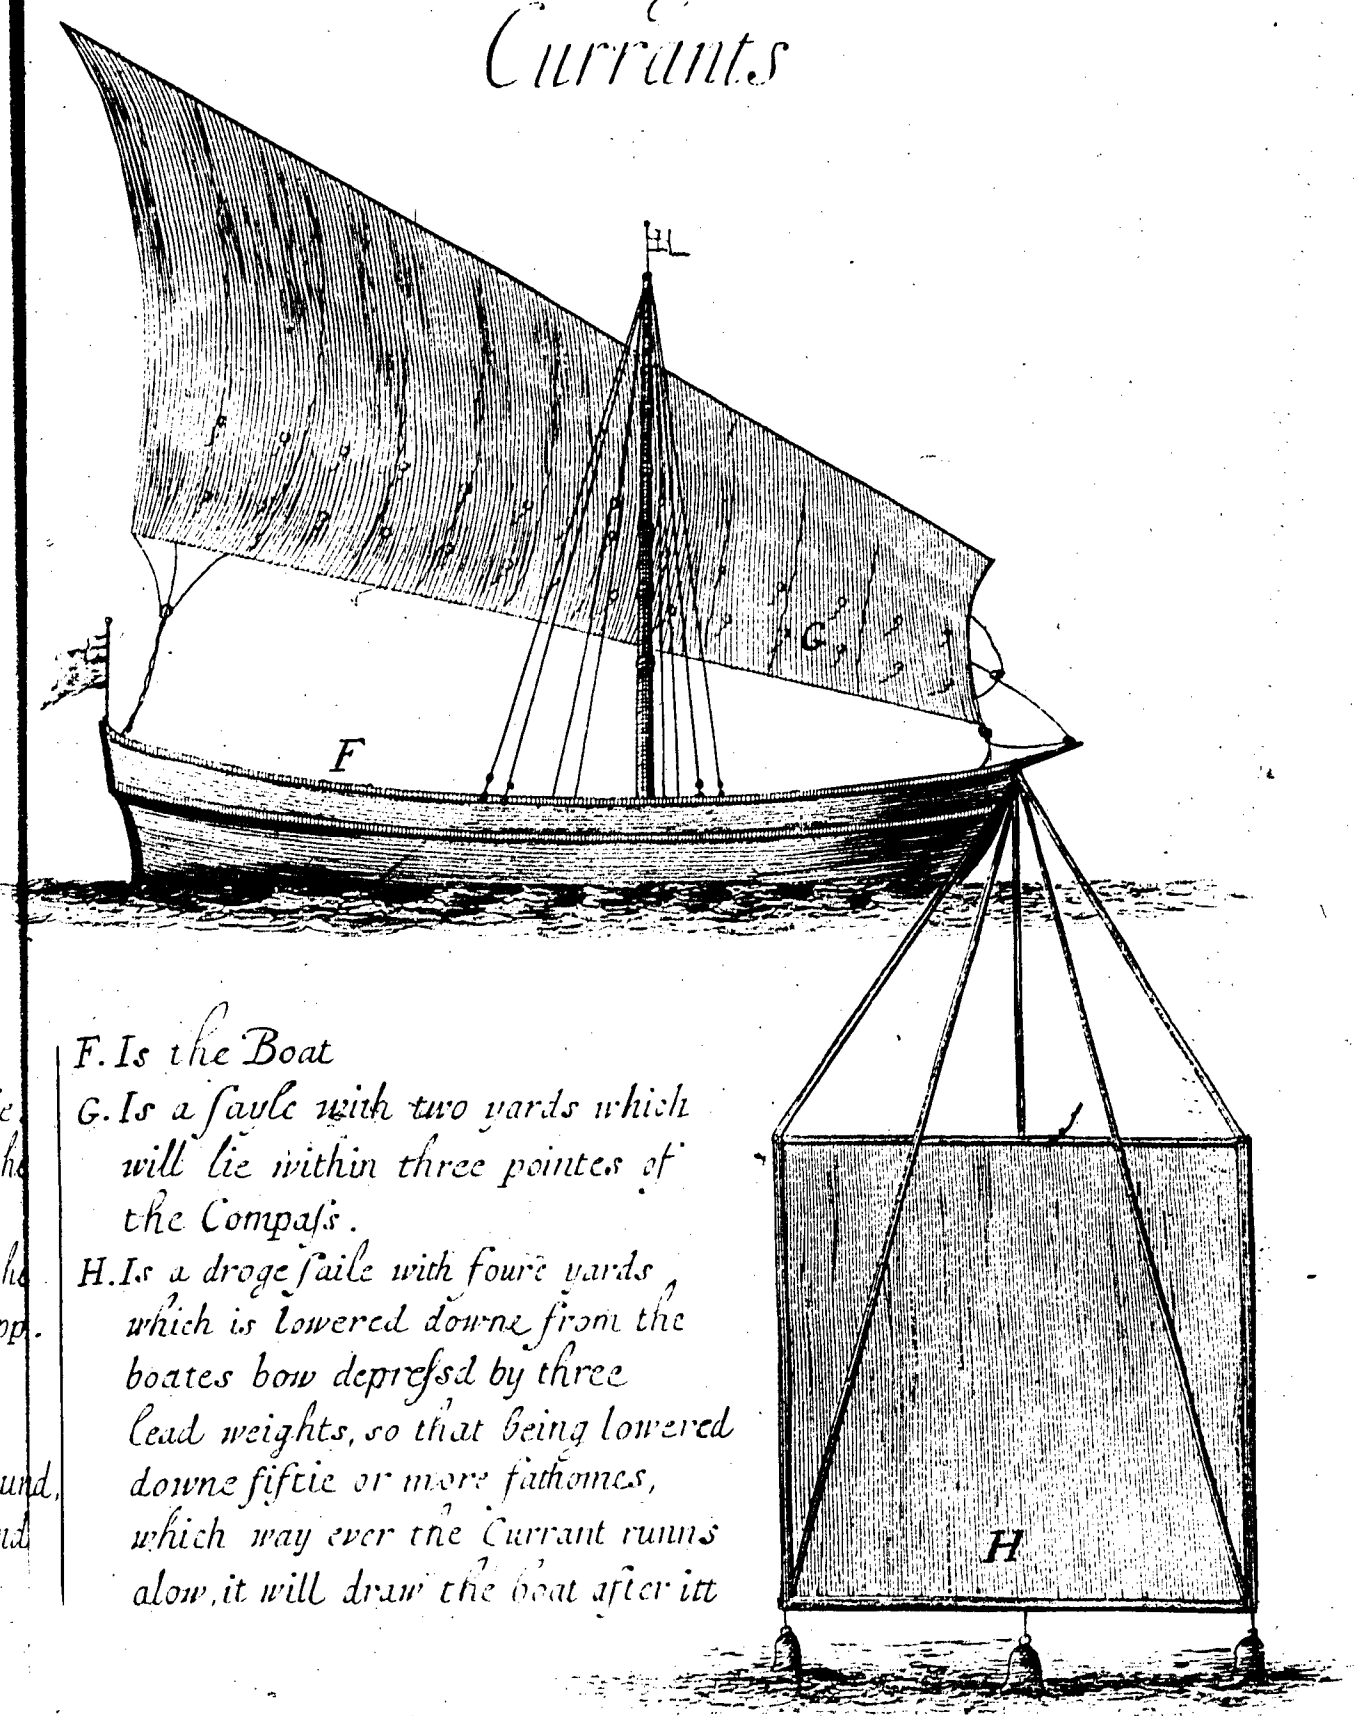 Currants
F
G
F. Is the Boat
G. Is a ſayle with two yards which
will lie within three pointes of
the Compaſs.
H. Is a droge ſaile with foure yards,
which is lowered downe from the
boates bow depreſsd by three
lead weights, so that being lowered
downe fiftie or more fathomes,
which way ever the Currant runns
alow, it will draw the boat after itt
und,
H